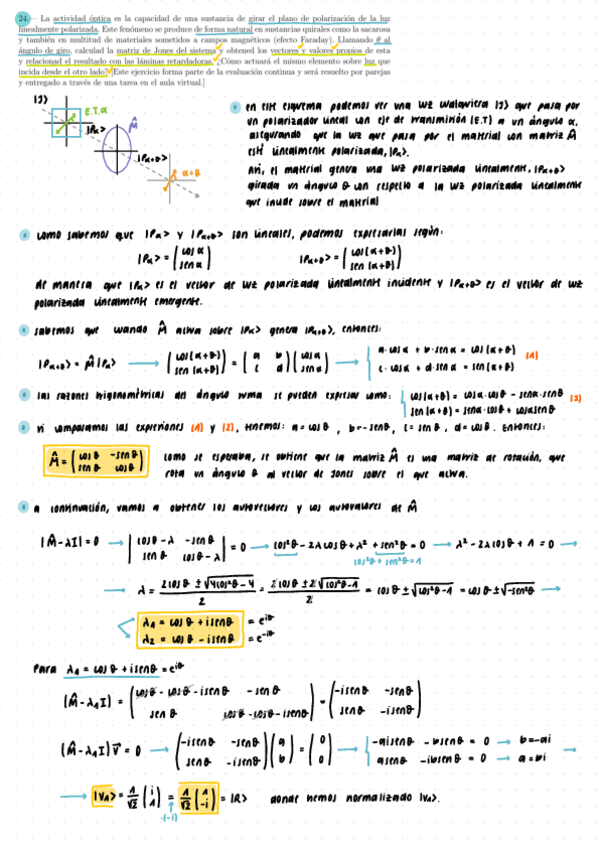 24.— La actividad óptica es la capacidad de una sustancia de girar el plano de polarización de la luz
linealmente polarizada. Este fenómeno se produce de forma natural en sustancias quirales como la sacarosa
y también en multitud de materiales sometidos a campos magnéticos (efecto Faraday). Llamando θ al
ángulo de giro, calculad la matriz de Jones del sistema y obtened los vectores y valores propios de esta
y relacionad el resultado con las láminas retardadoras. ¿Cómo actuará el mismo elemento sobre luz que
incida desde el otro lado? [Este ejercicio forma parte de la evaluación continua y será resuelto por parejas
y entregado a través de una tarea en el aula virtual.]
|J⟩
E.T.α
|Pα⟩
M̂
α+θ
en este esquema podemos ver una luz cualquiera |J⟩ que pasa por
un polarizador lineal con eje de transmisión (E.T) a un ángulo α,
asegurando que la luz que pasa por el material con matriz M̂
esté linealmente polarizada, |Pα⟩.
Así, el material genera luz polarizada linealmente, |Pα+θ⟩
girada un ángulo θ con respecto a la luz polarizada linealmente
que incide sobre el material
como sabemos que |Pα⟩ y |Pα+θ⟩ son lineales, podemos expresarlas según:
|Pα⟩ = (cos α / sen α) |Pα+θ⟩ = (cos(α+θ) / sen(α+θ))
de manera que |Pα⟩ es el vector de luz polarizada linealmente incidente y |Pα+θ⟩ es el vector de luz
polarizada linealmente emergente.
sabemos que cuando M̂ actúa sobre |Pα⟩ genera |Pα+θ⟩, entonces:
|Pα+θ⟩ = M̂|Pα⟩ → (cos(α+θ) / sen(α+θ)) = (a b / c d)(cos α / sen α) → { a·cos α + b·sen α = cos(α+θ) / c·cos α + d·sen α = sen(α+θ) (1)
las razones trigonométricas del ángulo suma se pueden expresar como: { cos(α+θ) = cosα·cosθ - senα·senθ / sen(α+θ) = senα·cosθ + cosα senθ (2)
si comparamos las expresiones (1) y (2), tenemos: a = cos θ, b = -senθ, c = sen θ, d = cos θ. Entonces:
M̂ = (cos θ -sen θ / sen θ cos θ) como se esperaba, se obtiene que la matriz M̂ es una matriz de rotación, que
rota un ángulo θ al vector de Jones sobre el que actúa.
a continuación, vamos a obtener los autovectores y los autovalores de M̂
|M̂ - λI| = 0 → |cos θ - λ -sen θ / sen θ cos θ - λ| = 0 → cos²θ - 2λcosθ + λ² + sen²θ = 0 → λ² - 2λcosθ + 1 = 0 →
cos²θ + sen²θ = 1
→ λ = (2cosθ ± √(4cos²θ - 4))/2 = (2cosθ ± 2√(cos²θ - 1))/2 = cos θ ± √(cos²θ - 1) = cos θ ± √(-sen²θ) →
λ₁ = cos θ + i senθ = e^{iθ}
λ₂ = cos θ - i senθ = e^{-iθ}
Para λ₁ = cos θ + i senθ = e^{iθ}
(M̂ - λ₁I) = (cosθ - cosθ - i senθ -sen θ / sen θ cosθ - cosθ - i senθ) = (-i senθ -senθ / senθ -i senθ)
(M̂ - λ₁I)V⃗ = 0 → (-i senθ -senθ / senθ -i senθ)(a / b) = (0 / 0) → { -ai senθ - b senθ = 0 → b = -ai / a senθ - ib senθ = 0 → a = bi →
→ |V₁⟩ = 1/√2 (i / 1) = 1/√2 (1 / -i) = |R⟩ donde hemos normalizado |V₁⟩.
·(-i)